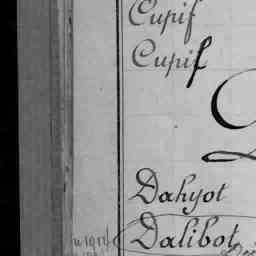 Cupif
Cupif
Dahyot
Dalibot